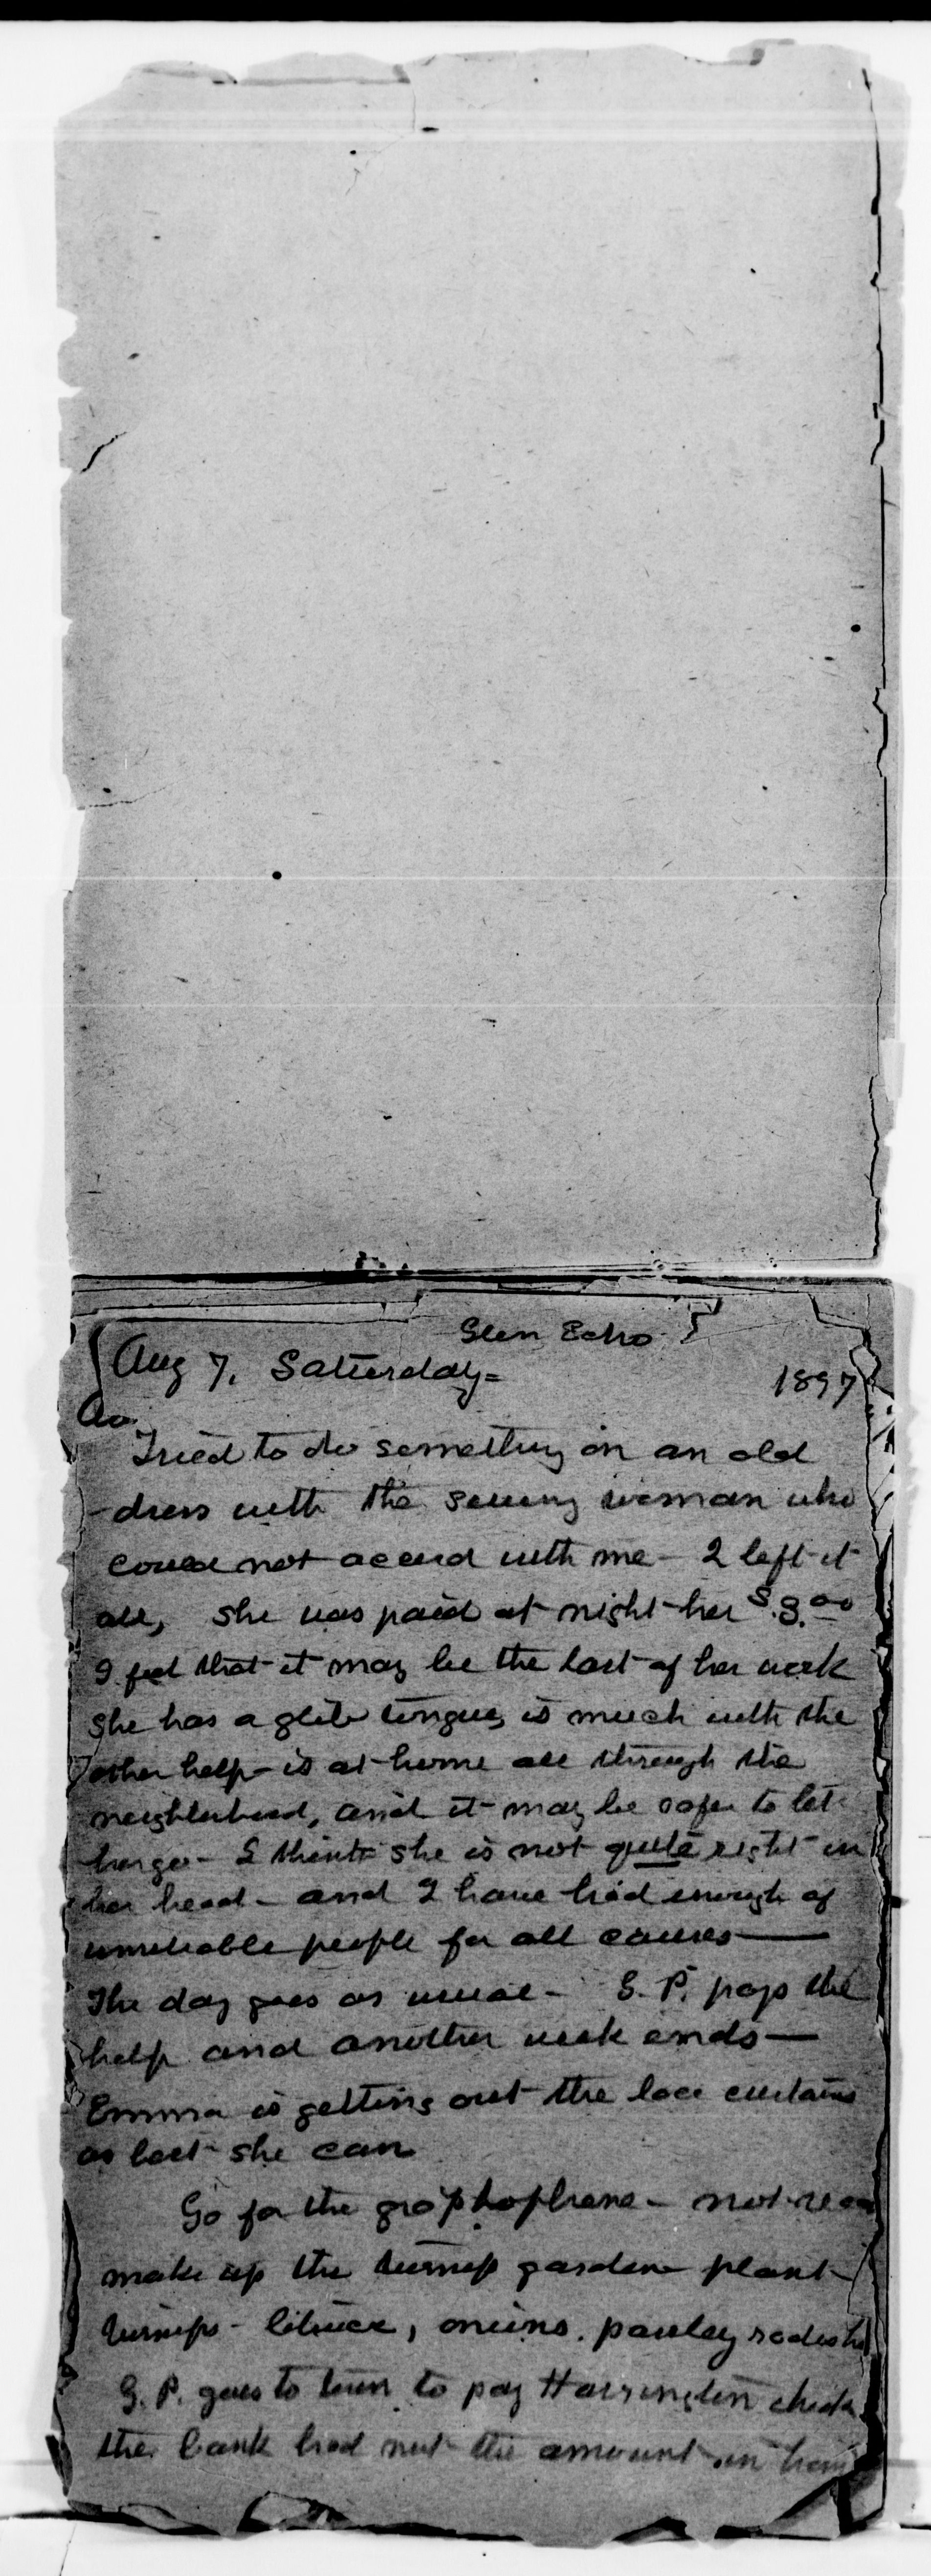 Glen Echo
Aug 7, Satturday=
1897
Tried to do something on an old
dress with the sewing woman who
could not accord with me - I left it
all, she was paid at night her $.3.00
I feel that it may be the last of her work
She has a glib tongue, is much with the
other help - is at home all through the
neighborhood, and it may be safe to let
her go - I think she is not quite right in
her head - and I have had enough of
unreliable people for all causes —
The day goes as usual - G. P. pays the
help and another week ends —
Emma is getting out the lace curtains
as best she can
Go for the graphophone - not
make up the turnip garden plant
turnips - lettuce, onions. parsley
G. P. goes to town to pay Harrington check
the bank had not the amount in